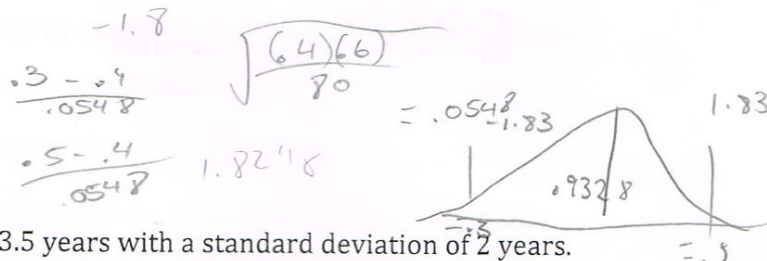 -1.8
√(.4)(.6)
80
= .0548
.3 - .4
.0548
-1.83
1.83
.5 - .4
.0548
1.8248
.9328
3.5 years with a standard deviation of 2 years.